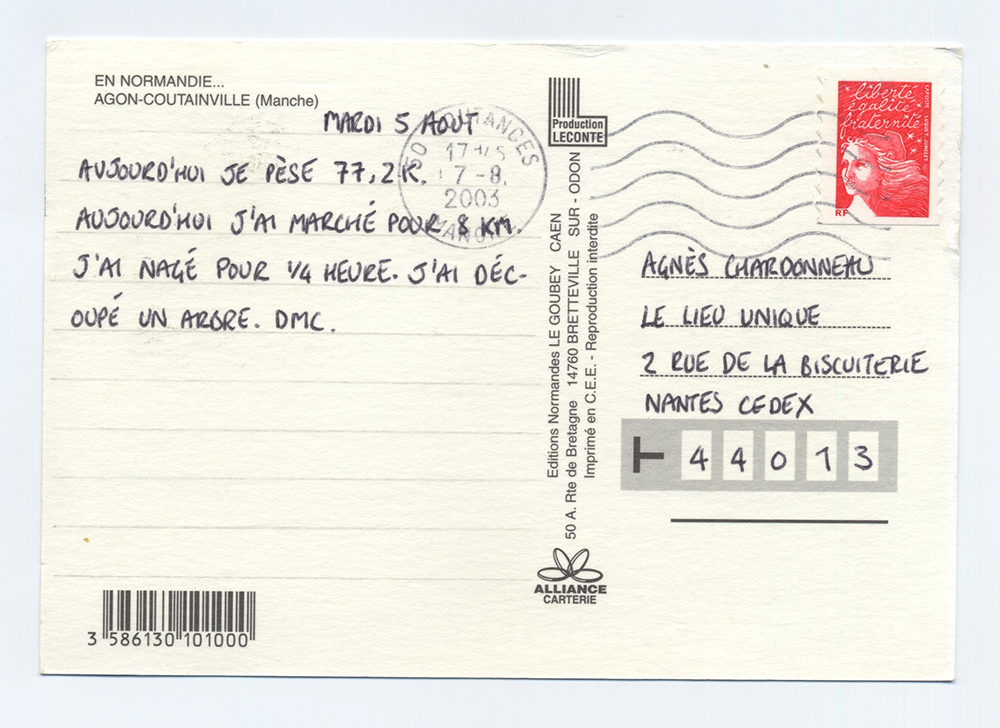 EN NORMANDIE...
AGON-COUTAINVILLE (Manche)
MARDI 5 AOUT
AUJOURD'HUI JE PÈSE 77,2K.
AUJOURD'HUI J'AI MARCHÉ POUR 8 KM.
J'AI NAGÉ POUR 1/4 HEURE. J'AI DÉC-
OUPÉ UN ARBRE. DMC.
3 586130 101000
50 COUTANCES
7-8
2003
MANCHE
Production
LECONTE
Editions Normandes LE GOUBEY CAEN
50 A. Rte de Bretagne 14760 BRETTEVILLE SUR - ODON
Imprimé en C.E.E. - Reproduction interdite
ALLIANCE
CARTERIE
liberté
égalité
fraternité
RF
AGNÈS CHARDONNEAU
LE LIEU UNIQUE
2 RUE DE LA BISCUITERIE
NANTES CEDEX
T 44013